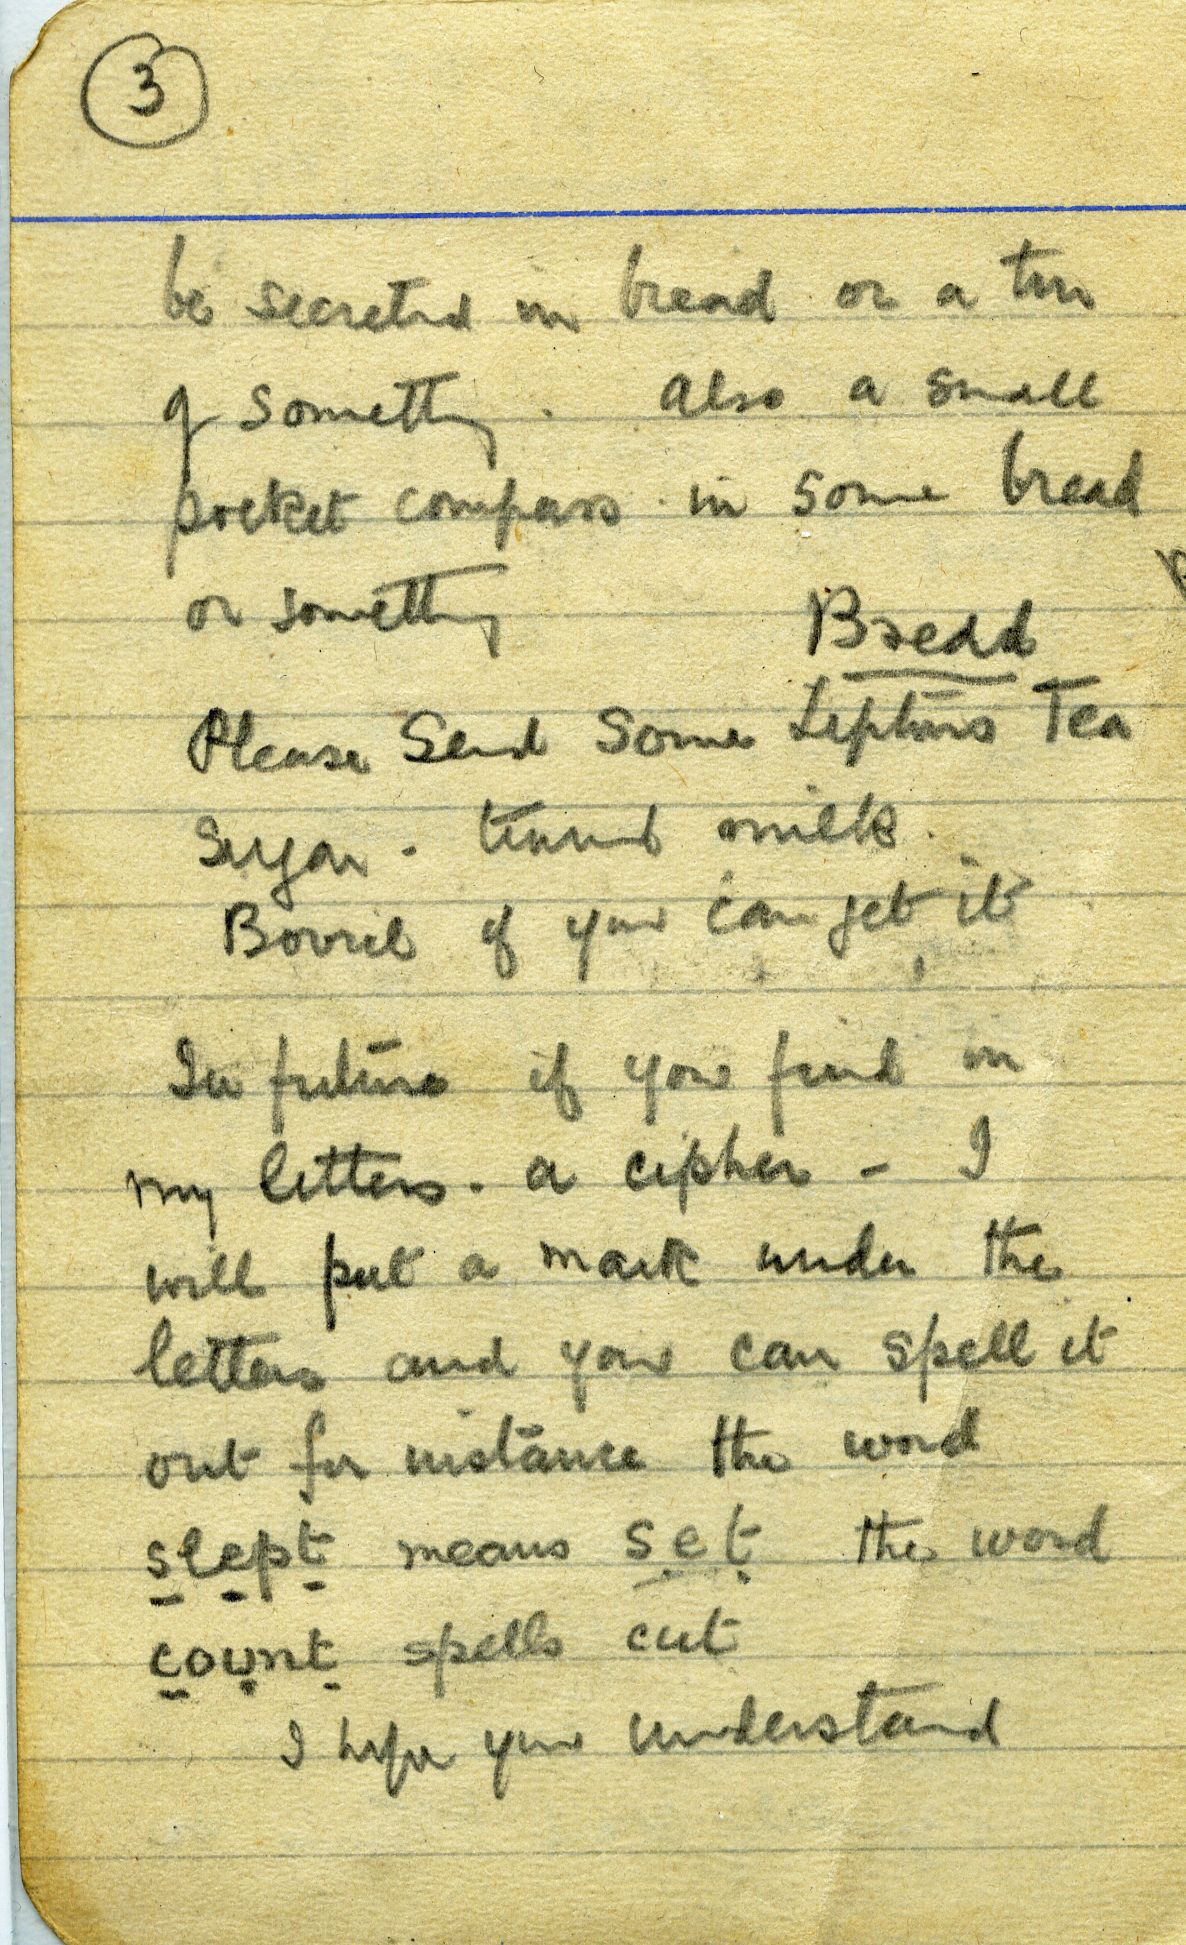 3
be secreted in bread or a tin
of something. Also a small
pocket compass in some bread
or something
Bread
Please Send Some Liptons Tea
Sugar - tinned milk.
Bovril if you can get it
In future if you find in
my letters. a cipher - I
will put a mark under the
letters and you can spell it
out for instance the word
slept means set the word
count spells cut
I hope you understand